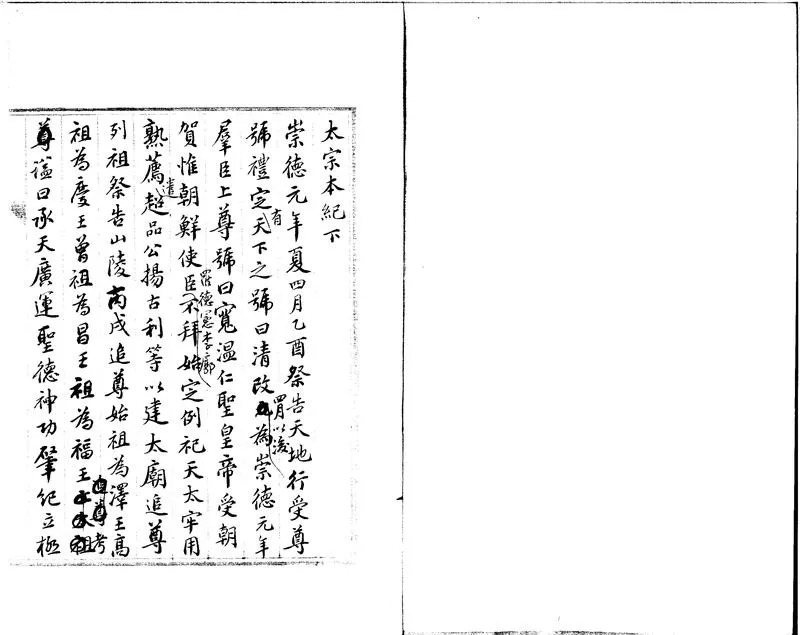 太宗本紀下
崇德元年夏四月乙酉祭告天地行受尊
號禮定有天下之號曰清改四月以後為崇德元年
羣臣上尊號曰寬温仁聖皇帝受朝
賀惟朝鮮使臣羅德憲李廓不拜始定例祀天太牢用
熟薦遣超品公揚古利等以建太廟追尊
列祖祭告山陵丙戌追尊始祖為澤王高
祖為慶王曾祖為昌王祖為福王考
尊諡曰承天廣運聖德神功肇紀立極